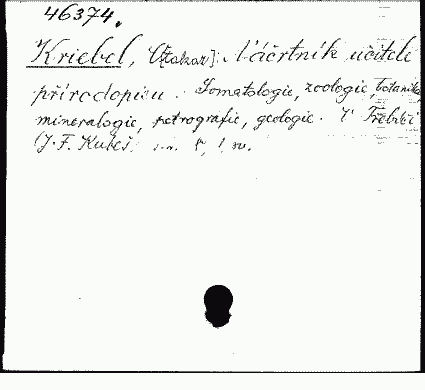 46374.
Kriebel, O[takar]: Náčrtník učitele
přírodopisu. Somatologie, zoologie, botanika
mineralogie, petrografie, geologie. V Třebíči
(J. F. Kubeš,